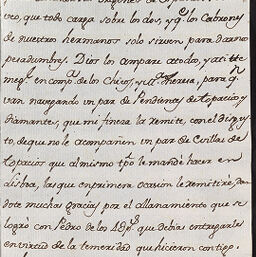 veo, que todo carga sobre los dos, y q.e los Cabrones
de nuestros hermanos solo sirven para darnos
pesadumbres. Dios los ampare a todos, y a ti te
me g.e en comp.a de los chicos, y Theresa, para q.n
van navegando un par de Pendientes de topacios y
diamantes, que mi fineza la remite, con el disgus
to, de que no le acompañen un par de Evillas de
topacios que al mismo tpo le mandé hacer en
Lisboa, las que en primera ocasion le remitiré, dan
dote muchas gracias por el allanamiento que se
logró con Pedro de los que debia entregarle
en virtud de la temeridad que hicieron contigo.